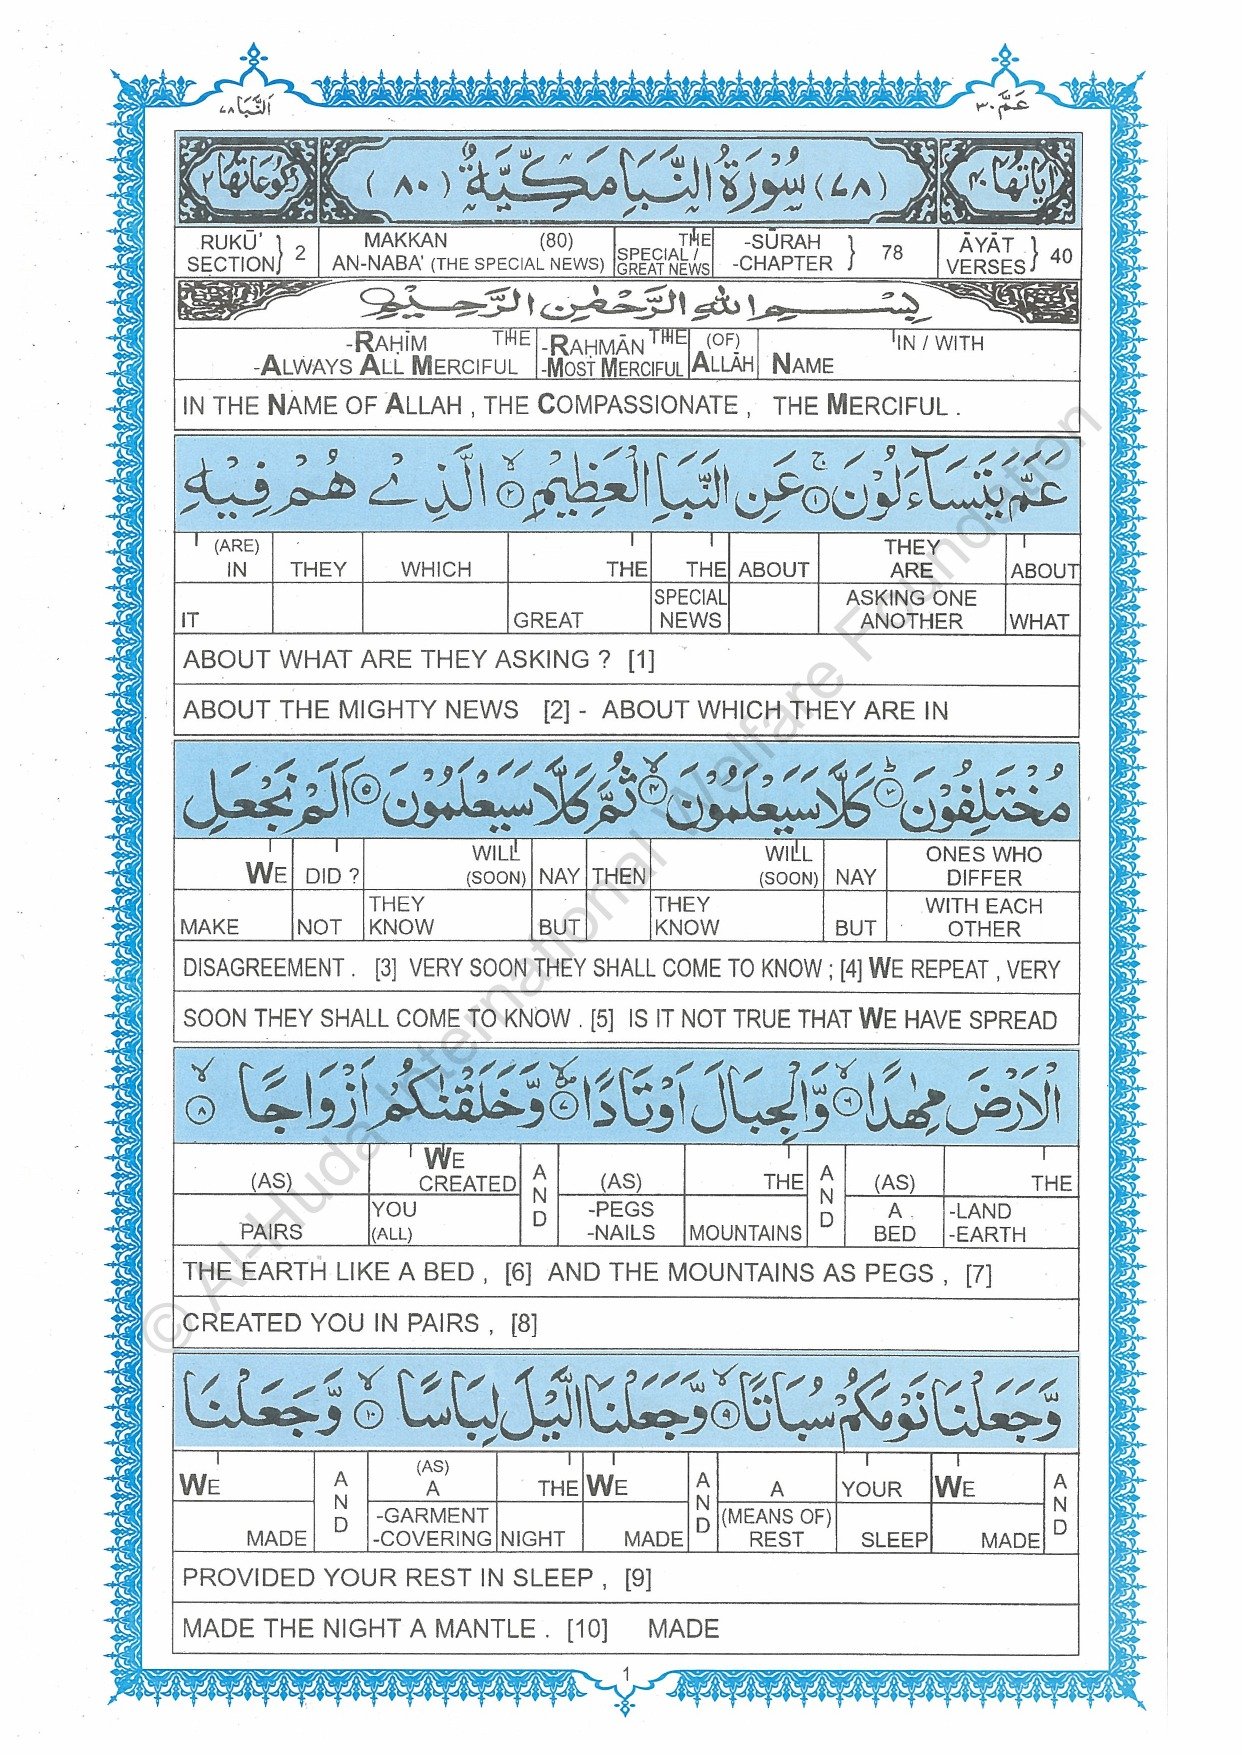 النَّبَا ٧٨
عَمَّ ٣٠
اٰيَاتُهَا ٤٠
(٧٨) سُوْرَةُ النَّبَاِ مَكِّيَّةٌ (٨٠)
رُكُوْعَاتُهَا ٢
RUKŪ’ SECTION } 2 MAKKAN (80) AN-NABA’ (THE SPECIAL NEWS) THE SPECIAL / GREAT NEWS -SŪRAH -CHAPTER } 78 ĀYĀT VERSES } 40
بِسْمِ اللّٰهِ الرَّحْمٰنِ الرَّحِيْمِ
-RAḤĪM THE -RAḤMĀN THE (OF) IN / WITH
-ALWAYS ALL MERCIFUL -MOST MERCIFUL ALLĀH NAME
IN THE NAME OF ALLAH , THE COMPASSIONATE , THE MERCIFUL .
عَمَّ يَتَسَآءَلُوْنَ ۚ ١ عَنِ النَّبَاِ الْعَظِيْمِ ۙ ٢ الَّذِيْ هُمْ فِيْهِ
(ARE) IN THEY WHICH THE THE ABOUT THEY ARE ABOUT
IT GREAT SPECIAL NEWS ASKING ONE ANOTHER WHAT
ABOUT WHAT ARE THEY ASKING ? [1]
ABOUT THE MIGHTY NEWS [2] - ABOUT WHICH THEY ARE IN
مُخْتَلِفُوْنَ ؕ ٣ كَلَّا سَيَعْلَمُوْنَ ۙ ٤ ثُمَّ كَلَّا سَيَعْلَمُوْنَ ٥ اَلَمْ نَجْعَلِ
WE DID ? WILL (SOON) NAY THEN WILL (SOON) NAY ONES WHO DIFFER
MAKE NOT THEY KNOW BUT THEY KNOW BUT WITH EACH OTHER
DISAGREEMENT . [3] VERY SOON THEY SHALL COME TO KNOW ; [4] WE REPEAT , VERY
SOON THEY SHALL COME TO KNOW . [5] IS IT NOT TRUE THAT WE HAVE SPREAD
الْاَرْضَ مِهٰدًا ۙ ٦ وَّالْجِبَالَ اَوْتَادًا ۙ ٧ وَّخَلَقْنٰكُمْ اَزْوَاجًا ۙ ٨
(AS) WE CREATED AND (AS) THE AND (AS) THE
PAIRS YOU (ALL) -PEGS -NAILS MOUNTAINS A BED -LAND -EARTH
THE EARTH LIKE A BED , [6] AND THE MOUNTAINS AS PEGS , [7]
CREATED YOU IN PAIRS , [8]
وَّجَعَلْنَا نَوْمَكُمْ سُبَاتًا ۙ ٩ وَّجَعَلْنَا الَّيْلَ لِبَاسًا ۙ ١٠ وَّجَعَلْنَا
WE AND (AS) A THE WE AND A YOUR WE AND
MADE -GARMENT -COVERING NIGHT MADE (MEANS OF) REST SLEEP MADE
PROVIDED YOUR REST IN SLEEP , [9]
MADE THE NIGHT A MANTLE . [10] MADE
1
© Al-Huda International Welfare Foundation